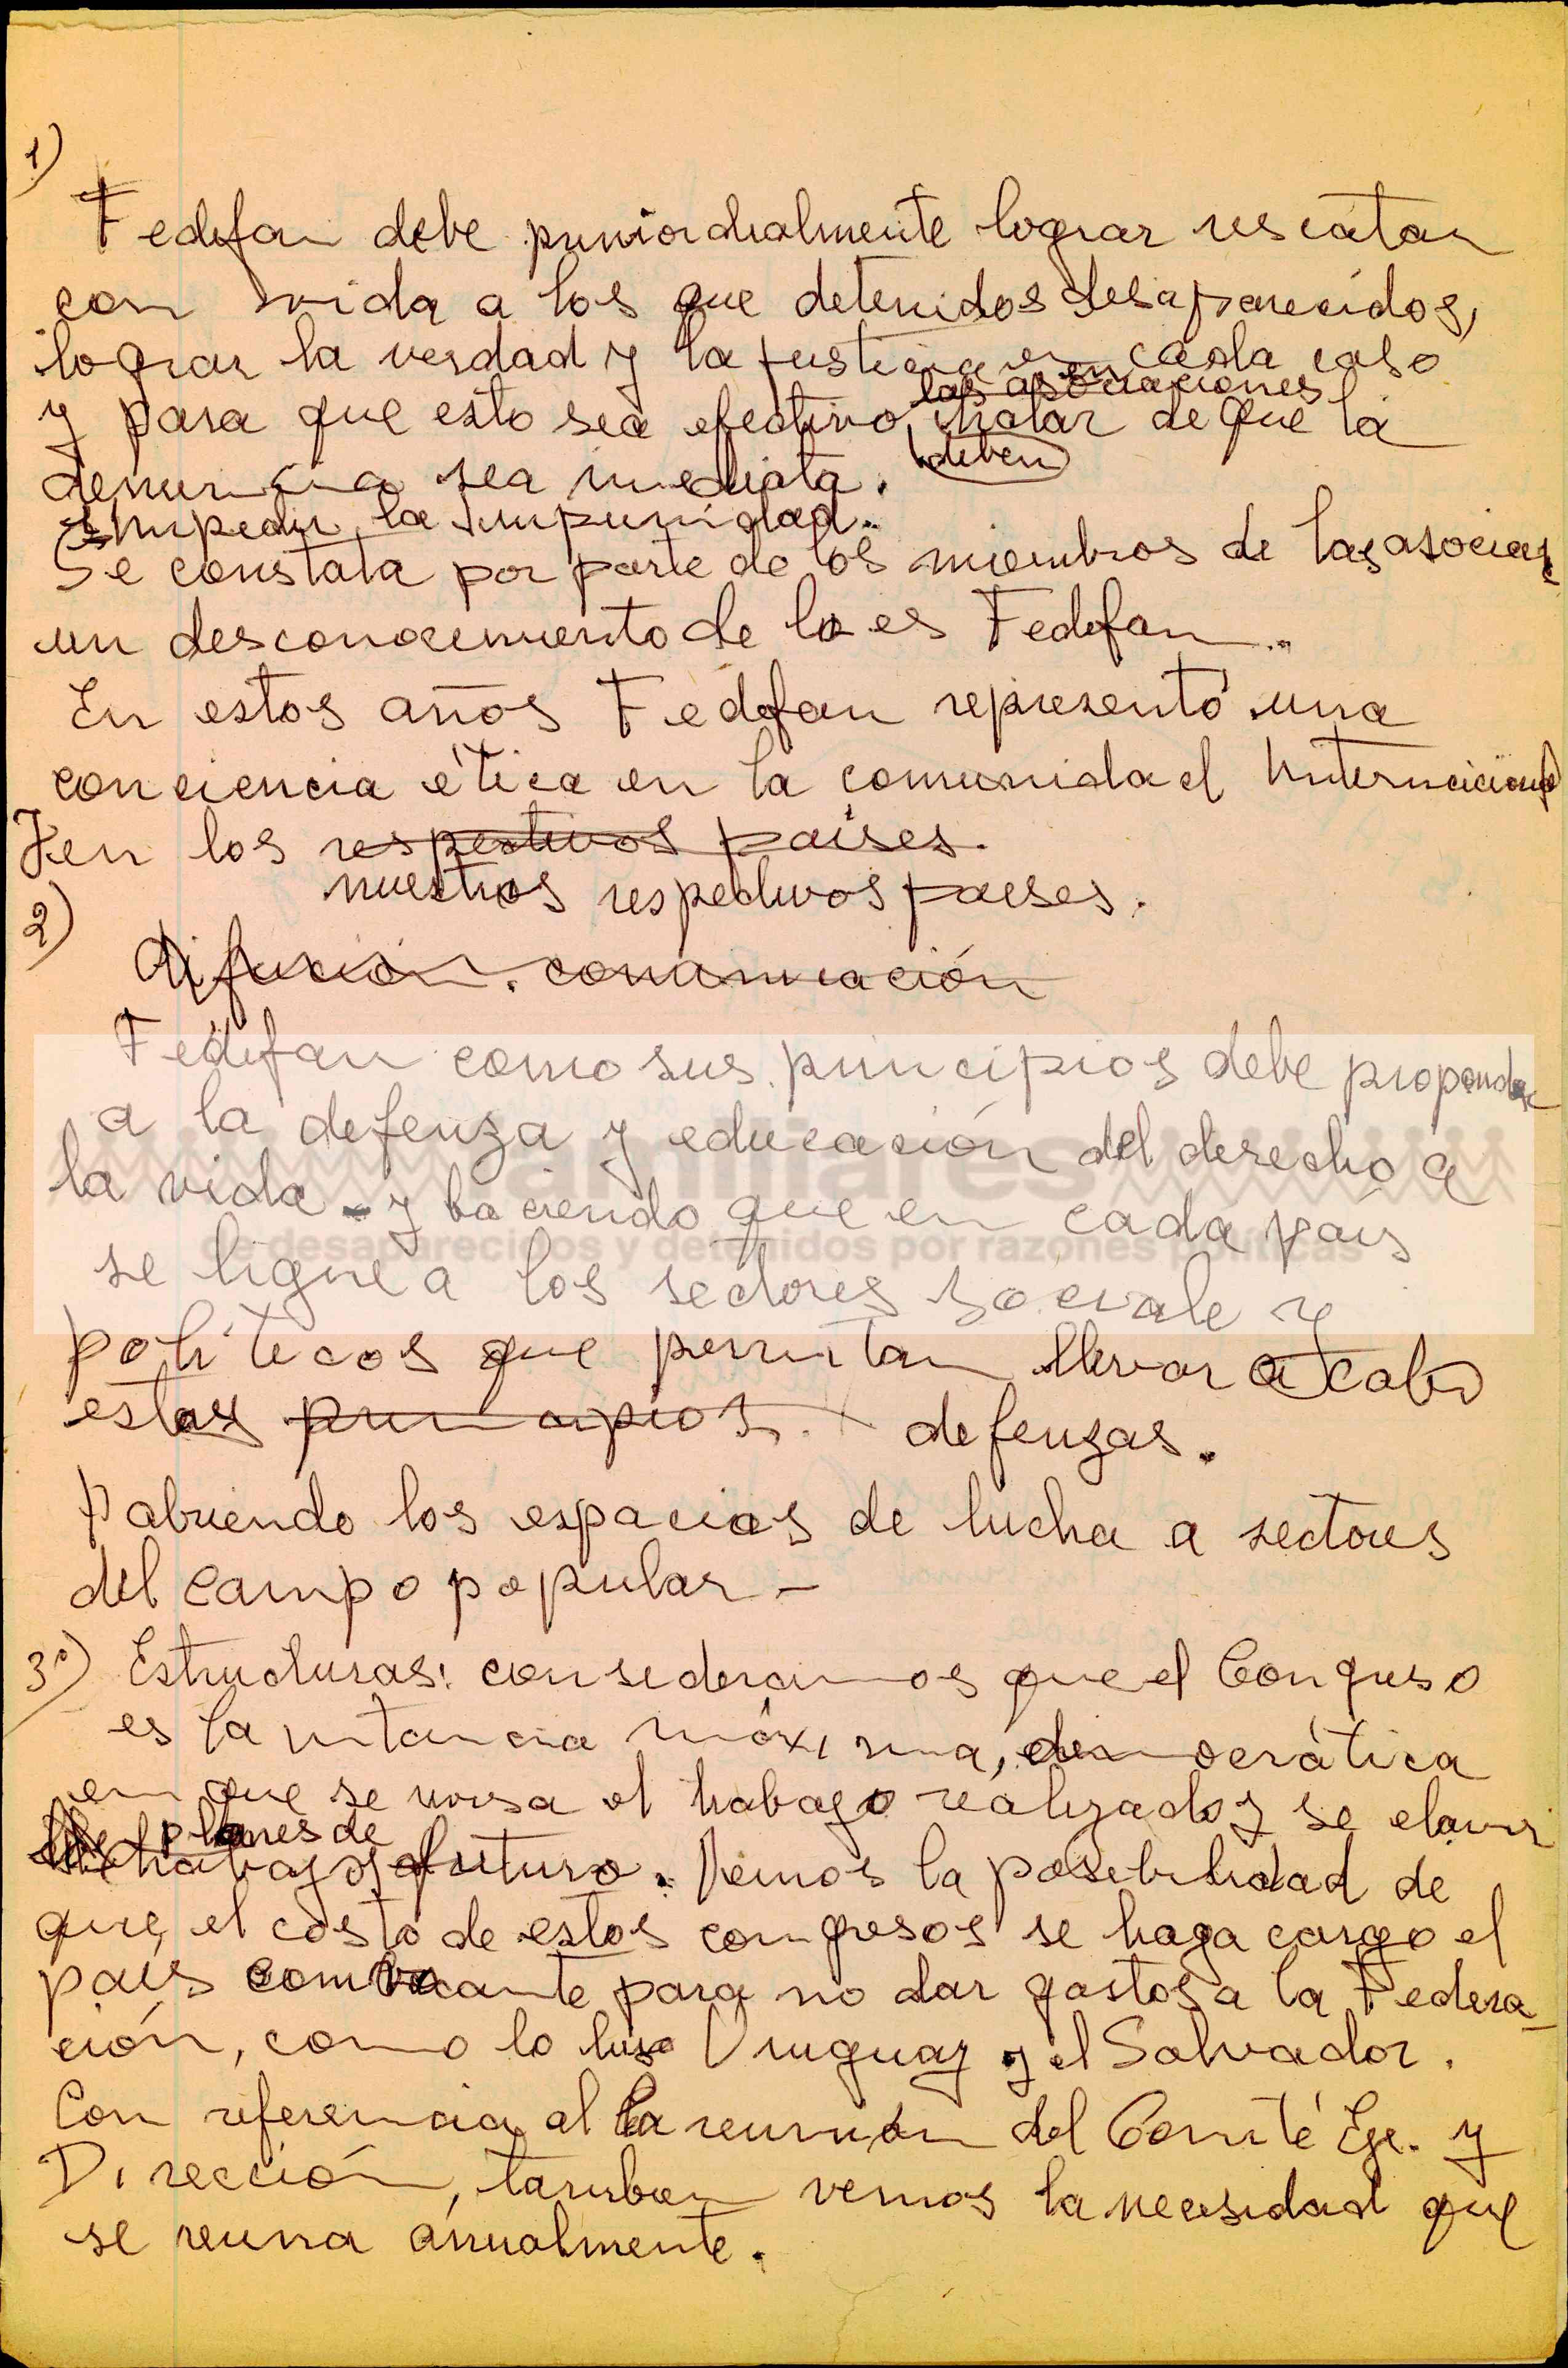 1)
Fedefan debe primordialmente lograr rescatar
con vida a los que detenidos desaparecidos,
lograr la verdad y la justicia en cada caso
las asociaciones
y para que esto sea efectivo, tratar de que la
deben
denuncia sea inmediata.
impedir la impunidad.
Se constata por parte de los miembros de las asociac
un desconocimiento de lo es Fedefan.
En estos años Fedefan representó una
conciencia ética en la comunidad Internacional
y en los respectivos países.
nuestros respectivos paises.
2)
difución. comunicación
Fedefan como sus principios debe propender
a la defenza y educación del derecho a
la vida y haciendo que en cada país
se ligue a los sectores sociale y
politicos que permitan llevar a cabo
estas principios. defenzas.
abriendo los espacios de lucha a sectores
del campo popular -
3º) Estructuras: consideramos que el Congreso
es la intancia máxima, democrática
en que se revisa el trabajo realizado y se elavora
planes de
trabajo futuro. Vemos la posibilidad de
que el costo de estos congresos se haga cargo el
país convocante para no dar gastos a la Federa-
ción, como lo hiso Uruguay y el Salvador.
Con referencia al la reunión del Comité Eje. y
Dirección, tambien vemos la necesidad que
se reuna anualmente.
familiares
de desaparecidos y detenidos por razones políticas